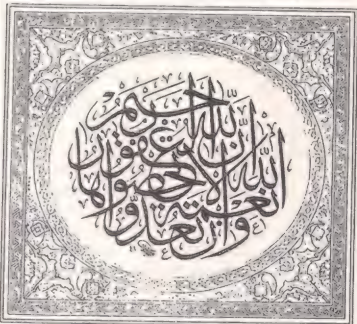 وَإِن تَعُدُّوا
نِعْمَةَ اللّٰهِ لَا تُحْصُوهَا
إِنَّ اللّٰهَ لَغَفُورٌ
رَحِيمٌ